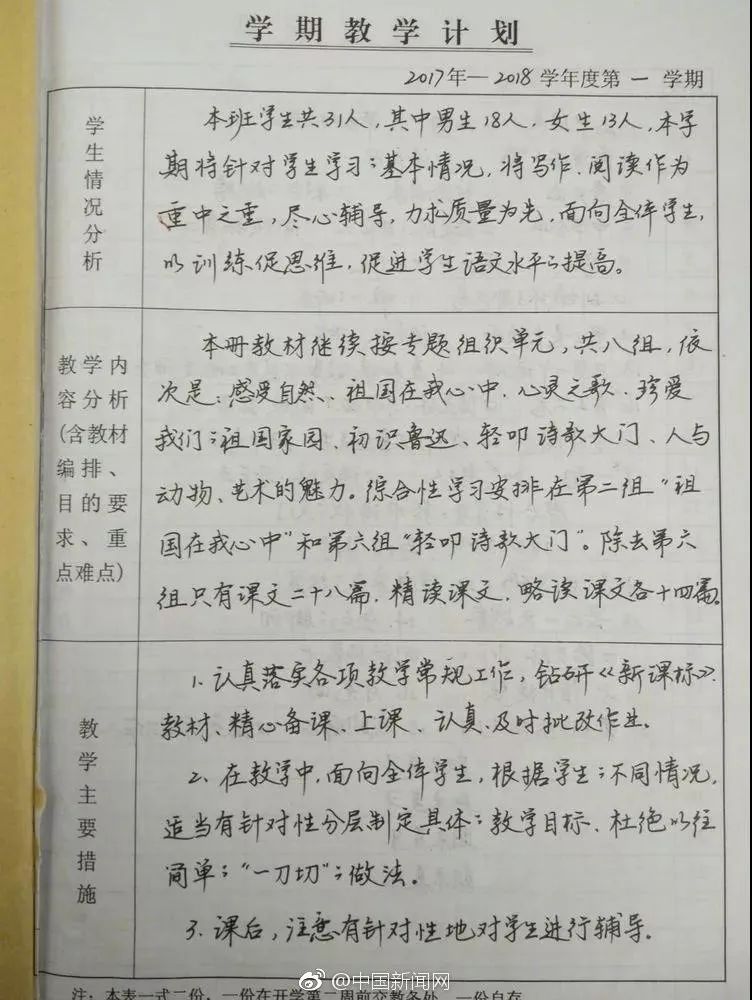 学期教学计划
2017年—2018学年度第一学期
学生情况分析
本班学生共31人，其中男生18人，女生13人，本学
期将针对学生学习的基本情况，将写作、阅读作为
重中之重，尽心辅导，力求质量为先，面向全体学生，
以训练促思维，促进学生语文水平的提高。
教学内
容分析
(含教材
编排、
目的要
求、重
点难点)
本册教材继续按专题组织单元，共八组，依
次是：感受自然、祖国在我心中、心灵之歌、珍爱
我们的祖国家园、初识鲁迅、轻叩诗歌大门、人与
动物、艺术的魅力。综合性学习安排在第二组“祖
国在我心中”和第六组“轻叩诗歌大门”。除去第六
组只有课文二十八篇，精读课文、略读课文各十四篇。
教学主要措施
1. 认真落实各项教学常规工作，钻研《新课标》
教材、精心备课、上课、认真、及时批改作业。
2. 在教学中，面向全体学生，根据学生的不同情况，
适当有针对性分层制定具体的教学目标、杜绝以往
简单的“一刀切”的做法。
3. 课后，注意有针对性地对学生进行辅导。
注：本表一式二份，一份在开学第二周前交教务处，一份自存
@中国新闻网